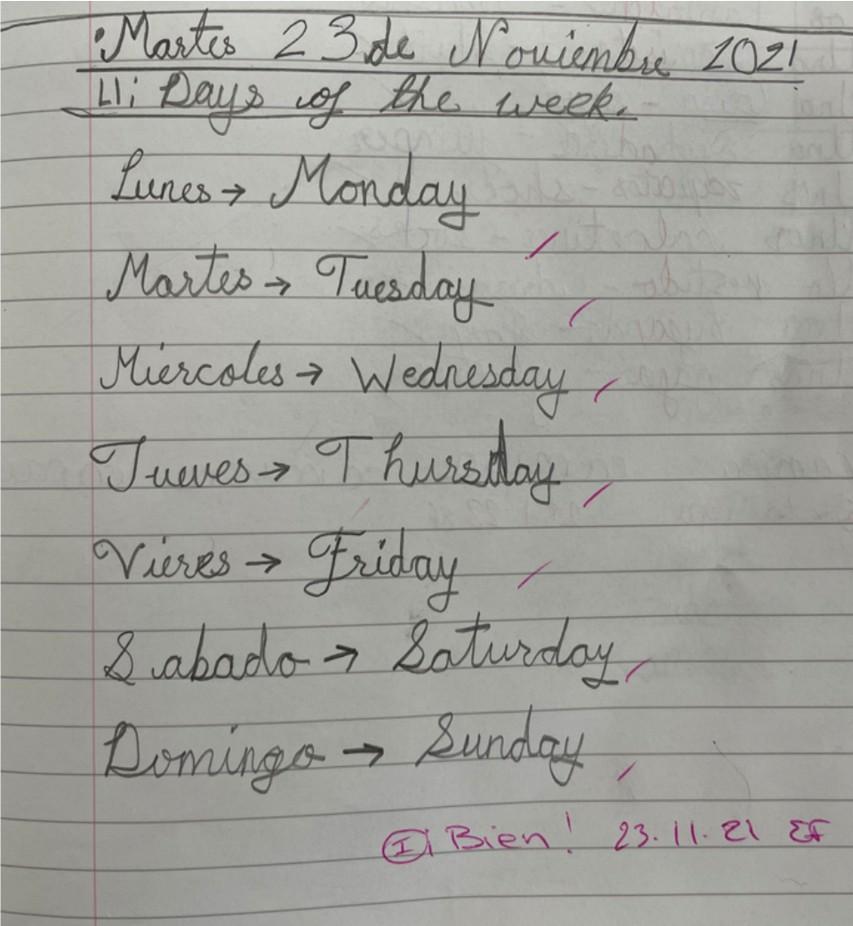 Martes 23 de Noviembre 2021
L1: Days of the week.
Lunes → Monday
Martes → Tuesday
Miércoles → Wednesday
Jueves → Thursday
Vieres → Friday
Sabado → Saturday
Domingo → Sunday
I ¡Bien! 23.11.21 EF